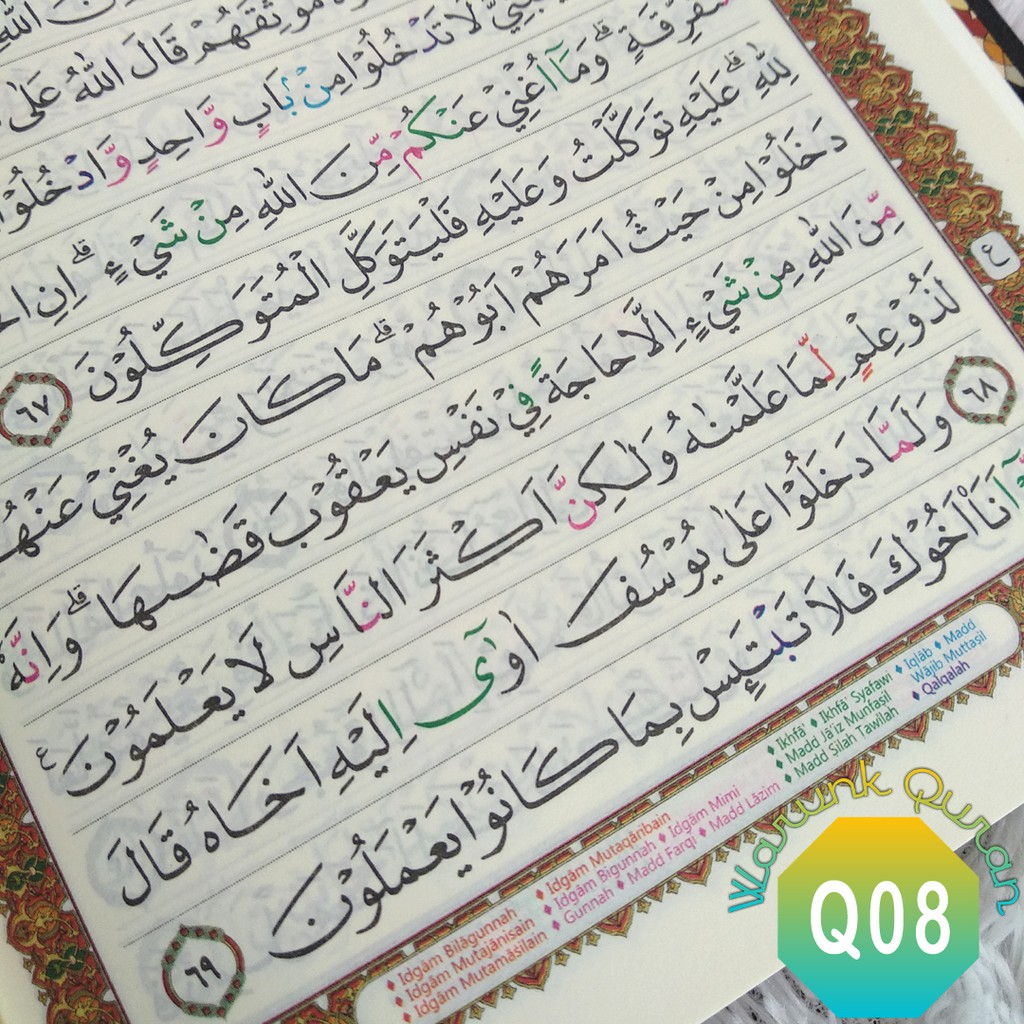 مَوْثِقَهُمْ قَالَ اللهُ عَلٰى
لَا تَدْخُلُوْا مِنْۢ بَابٍ وَّاحِدٍ وَّادْخُلُوْا
وَمَآ اُغْنِيْ عَنْكُمْ مِّنَ اللهِ مِنْ شَيْءٍۗ اِنِ
لِلّٰهِۗ عَلَيْهِ تَوَكَّلْتُ وَعَلَيْهِ فَلْيَتَوَكَّلِ الْمُتَوَكِّلُوْنَ ٦٧
دَخَلُوْا مِنْ حَيْثُ اَمَرَهُمْ اَبُوْهُمْۗ مَا كَانَ يُغْنِيْ
مِّنَ اللهِ مِنْ شَيْءٍ اِلَّا حَاجَةً فِيْ نَفْسِ يَعْقُوْبَ قَضٰىهَاۗ وَاِنَّهٗ
لَذُوْ عِلْمٍ لِّمَا عَلَّمْنٰهُ وَلٰكِنَّ اَكْثَرَ النَّاسِ لَا يَعْلَمُوْنَ ع
٦٨ وَلَمَّا دَخَلُوْا عَلٰى يُوْسُفَ اٰوٰٓى اِلَيْهِ اَخَاهُ قَالَ
اَنَا۠ اَخُوْكَ فَلَا تَبْتَىِٕسْ بِمَا كَانُوْا يَعْمَلُوْنَ ٦٩
ع
♦ Idgām Bilāgunnah ♦ Idgām Mutaqāribain
♦ Idgām Mutajānisain
♦ Idgām Mutamāṡilain
♦ Idgām Bigunnah ♦ Idgām Mimi
♦ Gunnah ♦ Madd Farqi ♦ Madd Lāzim
♦ Ikhfā' ♦ Ikhfā' Syafawi
♦ Madd Jā'iz Munfaṣil
♦ Madd Ṣilah Ṭawīlah
♦ Iqlāb ♦ Madd Wājib Muttaṣil
♦ Qalqalah
Warunk Quran
Q08